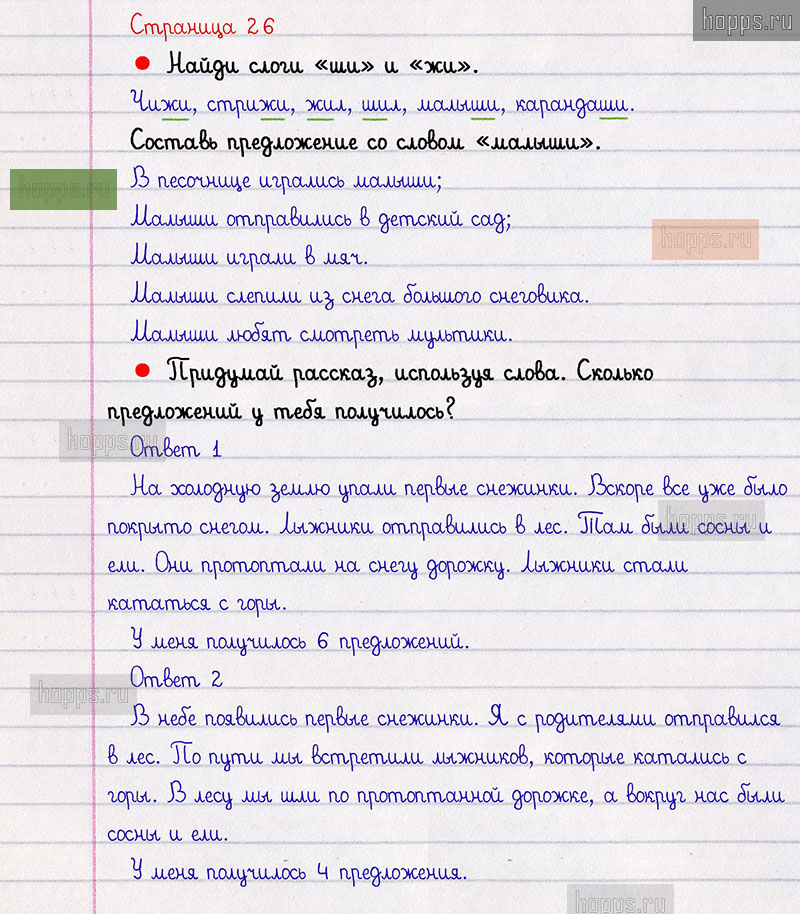 hopps.ru
Страница 26
Найди слоги «ши» и «жи».
Чижи, стрижи, жил, шил, малыши, карандаши.
Составь предложение со словом «малыши».
В песочнице игрались малыши;
hopps.ru
Малыши отправились в детский сад;
hopps.ru
Малыши играли в мяч.
Малыши слепили из снега большого снеговика.
Малыши любят смотреть мультики.
Придумай рассказ, используя слова. Сколько
предложений у тебя получилось?
hopps.ru
Ответ 1
На холодную землю упали первые снежинки. Вскоре все уже было
hopps.ru
покрыто снегом. Лыжники отправились в лес. Там были сосны и
ели. Они протоптали на снегу дорожку. Лыжники стали
кататься с горы.
У меня получилось 6 предложений.
Ответ 2
hopps.ru
В небе появились первые снежинки. Я с родителями отправился
в лес. По пути мы встретили лыжников, которые катались с
горы. В лесу мы шли по протоптанной дорожке, а вокруг нас были
сосны и ели.
У меня получилось 4 предложения.
hopps.ru